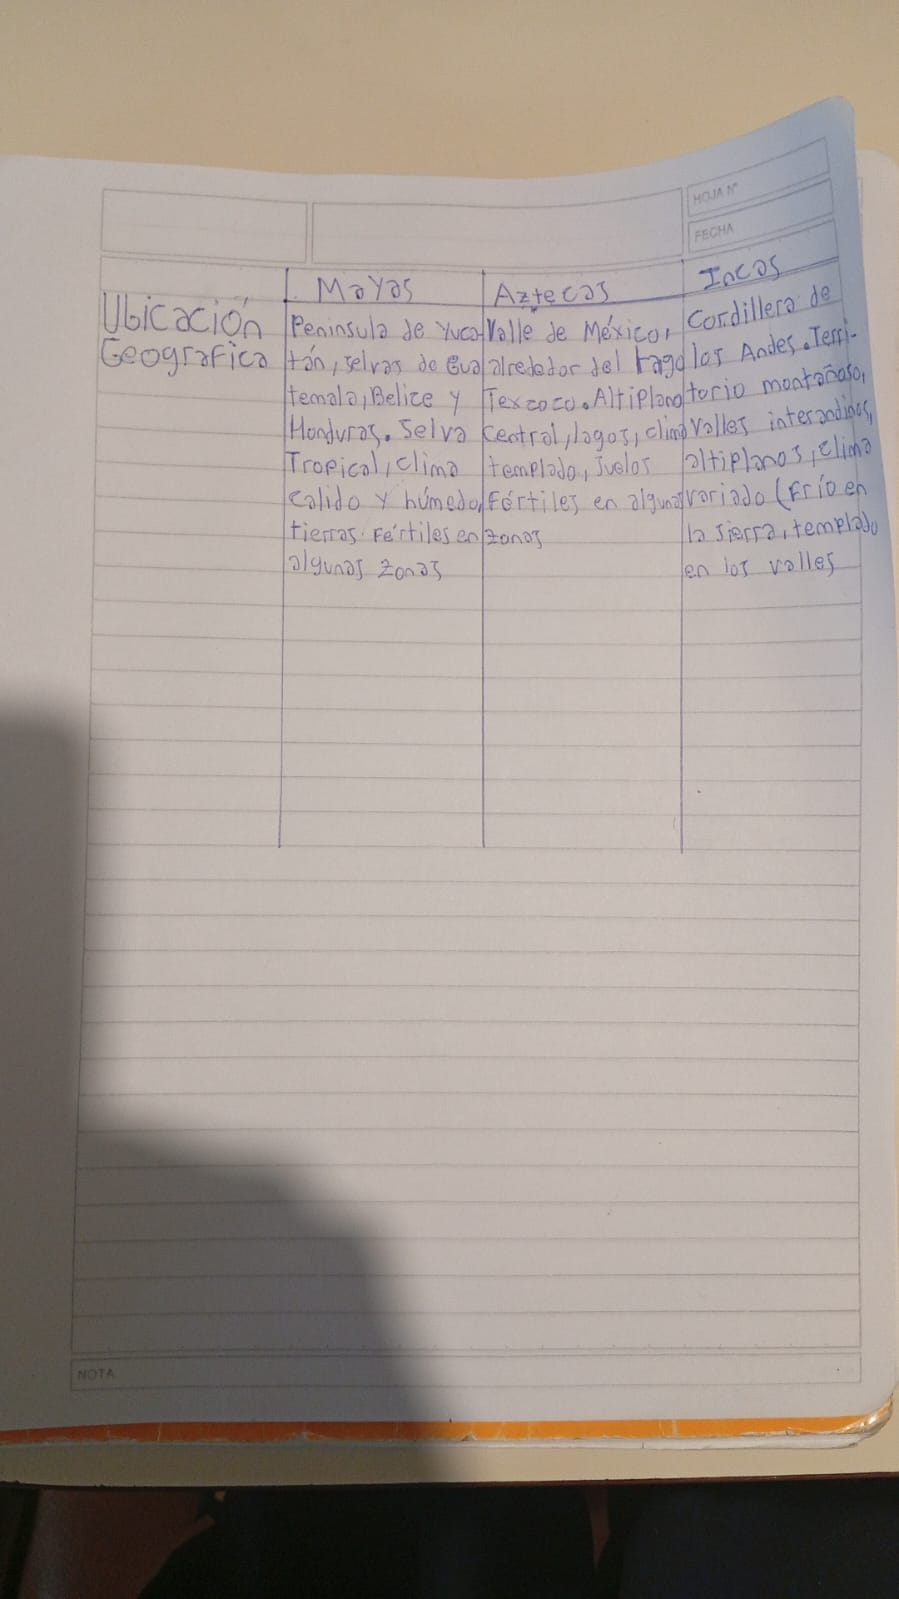 HOJA N°
FECHA
Mayas
Aztecas
Incas
Ubicación
Geografica
Peninsula de Yuca-
tán, selvas de Gua
temala, Belice y
Honduras. Selva
Tropical, clima
calido y húmedo,
tierras Fértiles en
algunas zonas
Valle de México,
alrededor del Lago
Texcoco. Altiplano
Central, lagos, clima
templado, suelos
Fértiles en algunas
zonas
Cordillera de
los Andes. Terri-
torio montañoso,
valles interandinos,
altiplanos, clima
variado (Frío en
la sierra, templado
en los valles
NOTA